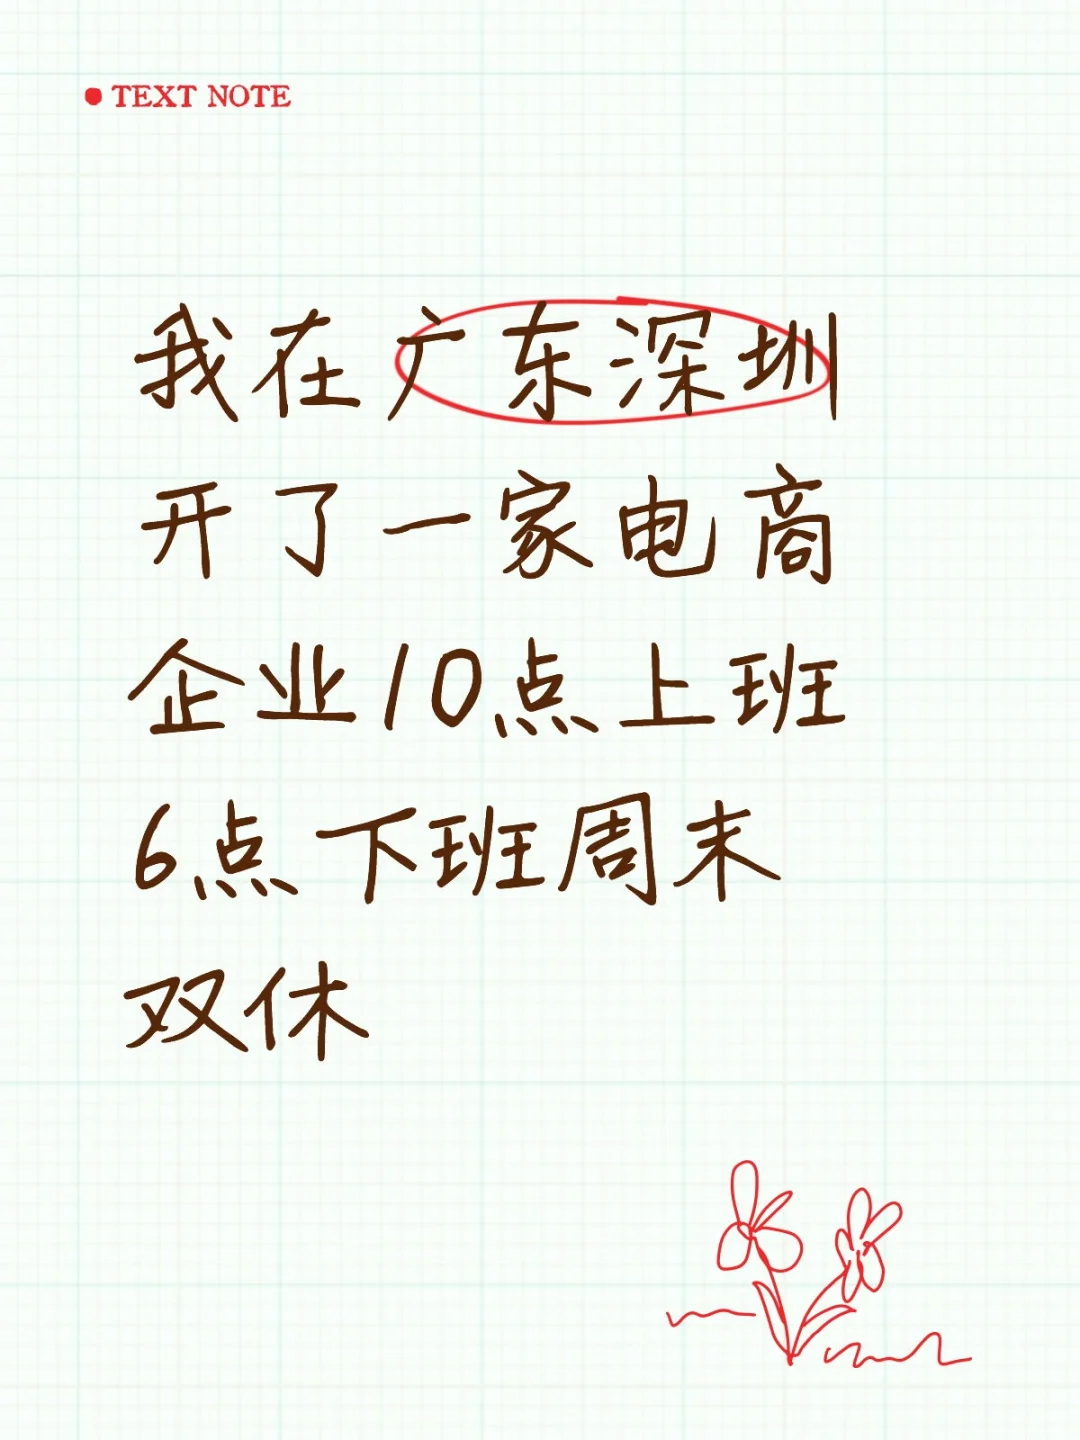 TEXT NOTE
我在广东深圳
开了一家电商
企业10点上班
6点下班周末
双休